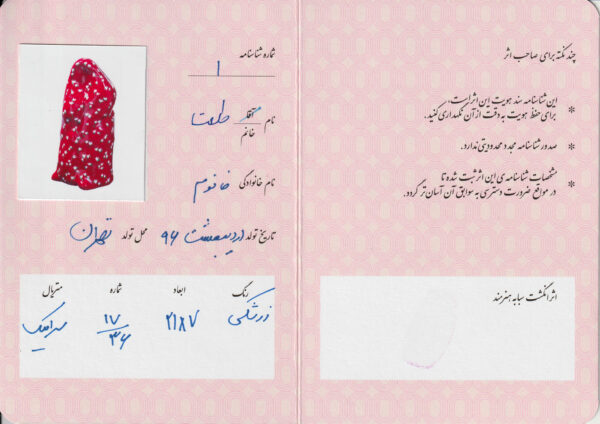 چند نکته برای صاحب اثر
* این شناسنامه سند هویت این اثر است.
برای حفظ هویت به دقت از آن نگهداری کنید.
* صدور شناسنامه مجدد محدودیتی ندارد.
* مشخصات شناسنامه‌ی این اثر ثبت شده تا
در مواقع ضرورت دسترسی به سوابق آن آسان‌تر گردد.
اثر انگشت سبابه هنرمند
شماره شناسنامه
۱
نام آقا
خانم
نام خانوادگی خانوم
تاریخ تولد اردیبهشت ۹۶ محل تولد تهران
رنگ ابعاد شماره متریال
زرشکی ۲۱×۷ ۱۷/۳۶ سرامیک